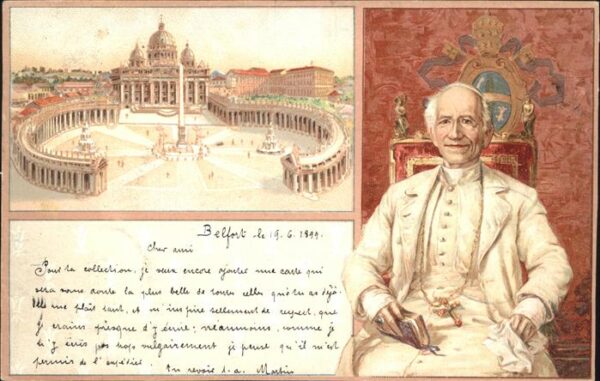 Belfort le 19. 6. 1899.
Cher ami
Pour ta collection, je veux encore ajouter une carte qui
sera sans doute la plus belle de toutes celles que tu as déjà.
Elle me plaît tant, et m'inspire tellement de respect, que
j'y crains presque d'y écrire; néanmoins, comme je
n'y écris pas trop vulgairement je pense qu'il m'est
permis de l'expédier.
Au revoir t. a. Martin